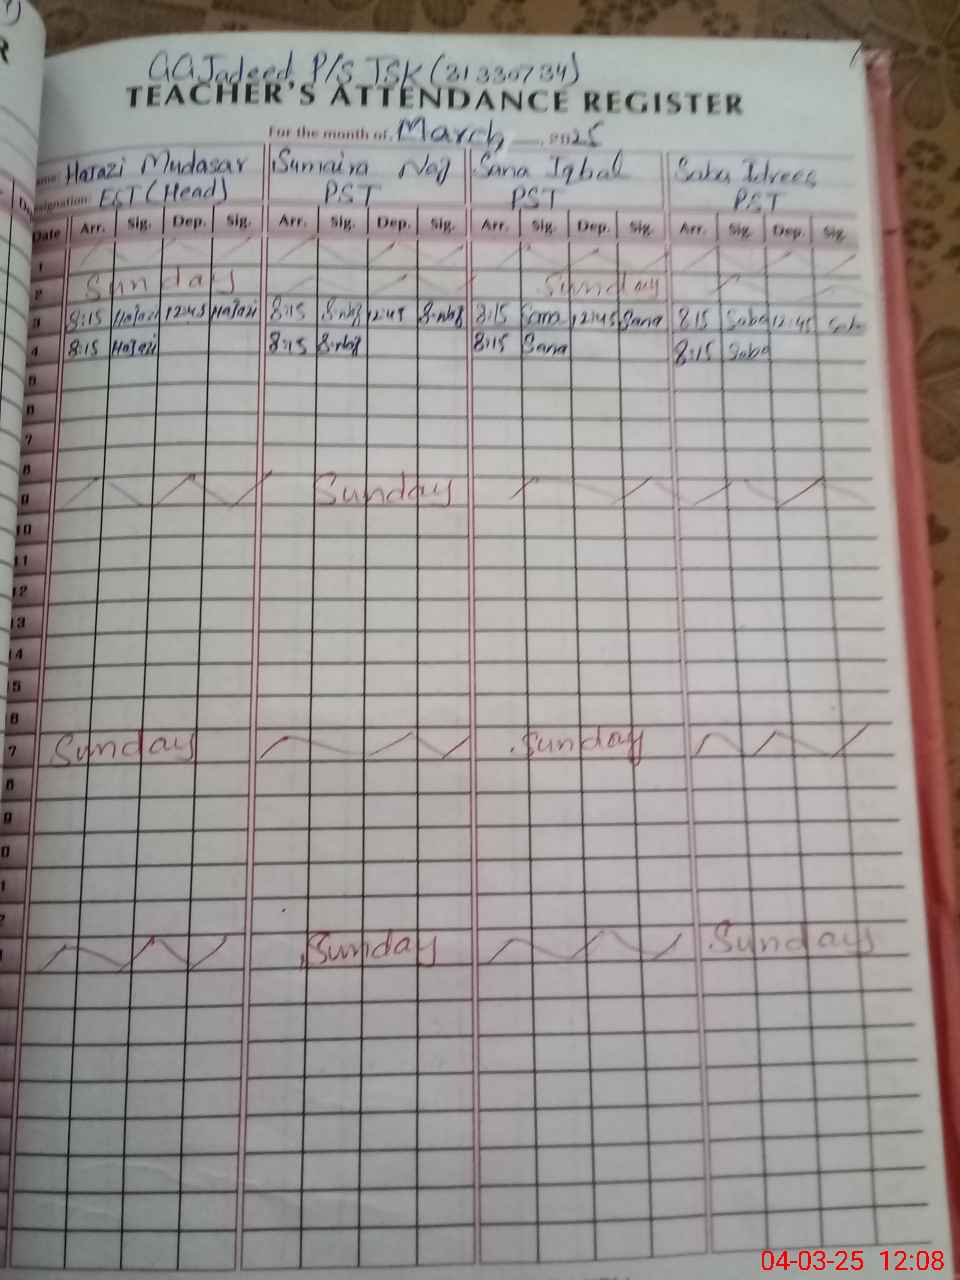 GGJadeed P/S JSK (31330734)
TEACHER'S ATTENDANCE REGISTER
For the month of March 2025
Name: Hajazi Mudasar Sumaira Naz Sana Iqbal Saba Idrees
Designation: EST (Head) PST PST PST
Date Arr. Sig. Dep. Sig. Arr. Sig. Dep. Sig. Arr. Sig. Dep. Sig. Arr. Sig. Dep. Sig.
1
2 Sunday Sunday
3 8:15 Hajazi 12:45 Hajazi 8:15 S.naz 12:45 S.naz 8:15 Sana 12:45 Sana 8:15 Saba 12:45 Saba
4 8:15 Hajazi 8:15 S.naz 8:15 Sana 8:15 Saba
5
6
7
8
9 Sunday
10
11
12
13
14
15
6
7 Sunday Sunday
8
9
0
1
2
Sunday Sunday
04-03-25 12:08